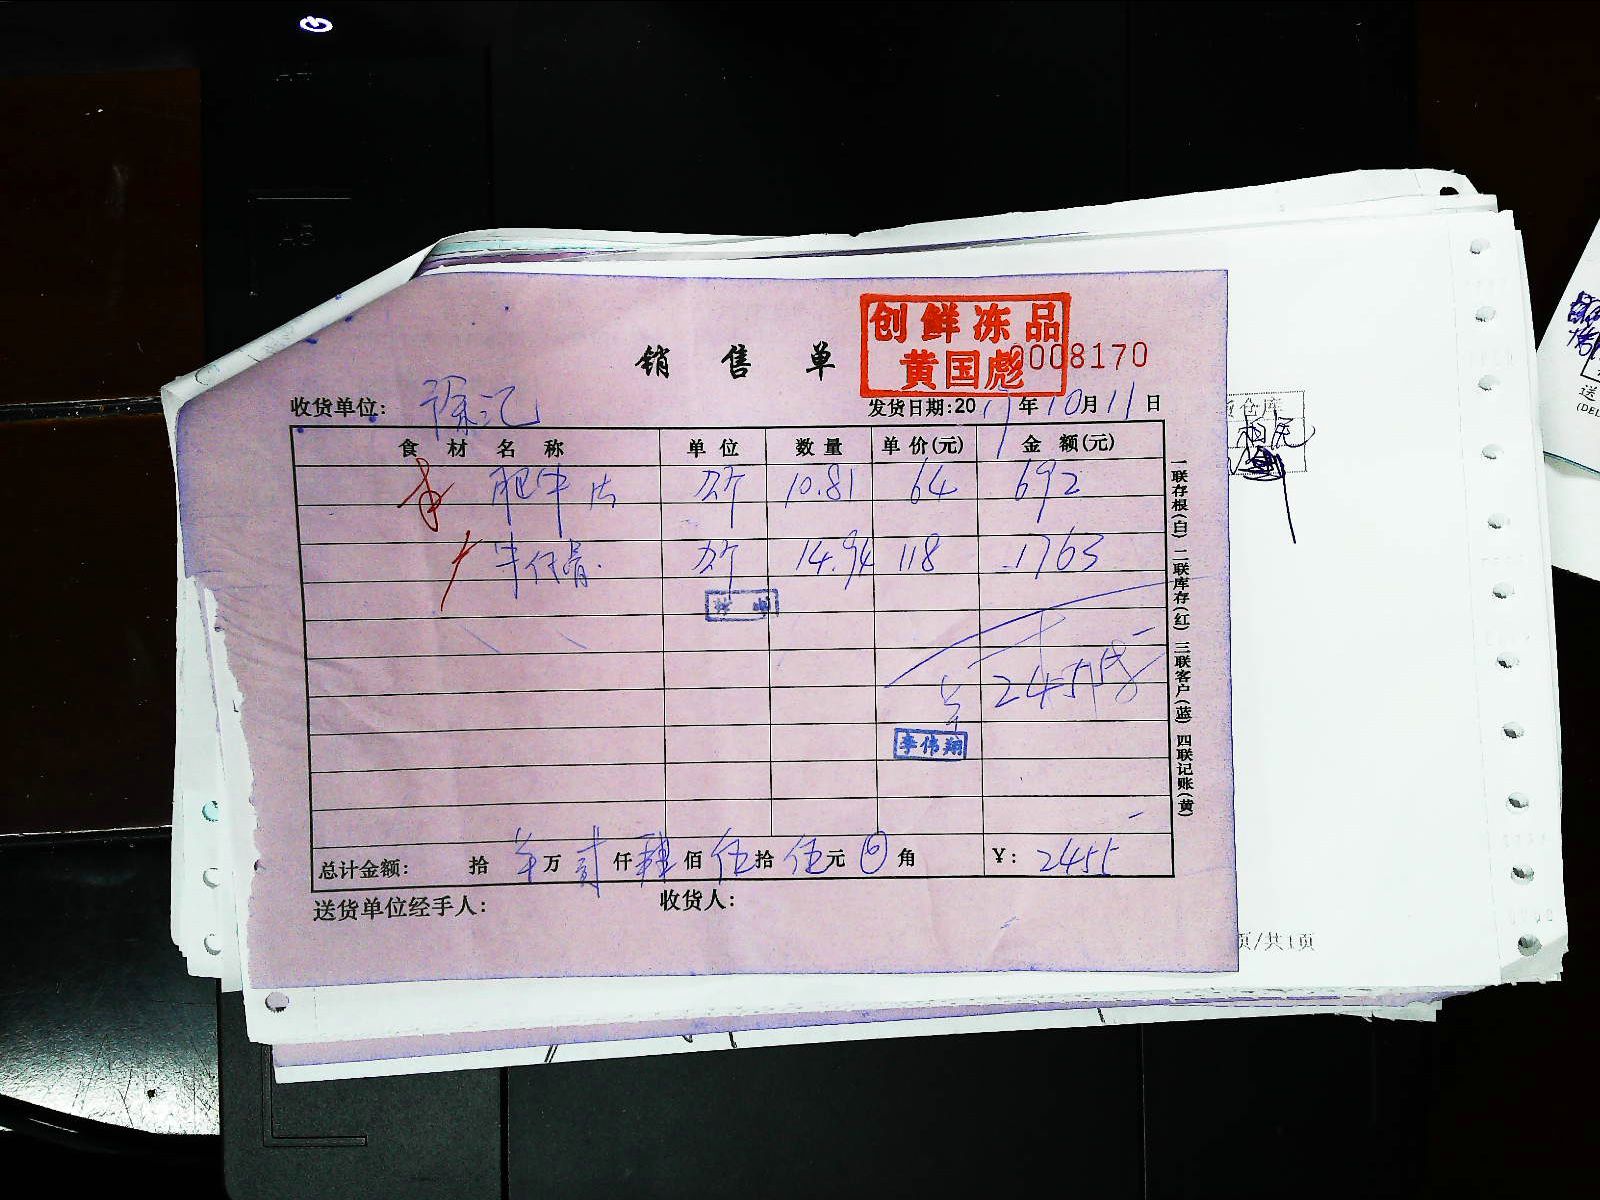 A5
创鲜冻品
黄国彪
销售单
0008170
收货单位: 徐记
发货日期:2017年10月11日
食材名称 单位 数量 单价(元) 金额(元)
肥牛 斤 10.81 64 692
牛仔骨 斤 14.94 118 1763
2455
李伟翔
总计金额: 拾 万 贰仟肆佰伍拾伍元 角 ¥: 2455
送货单位经手人: 收货人:
一联存根(白) 二联库存(红) 三联客户(蓝) 四联记账(黄)
仓库
页/共1页
送
(DEL